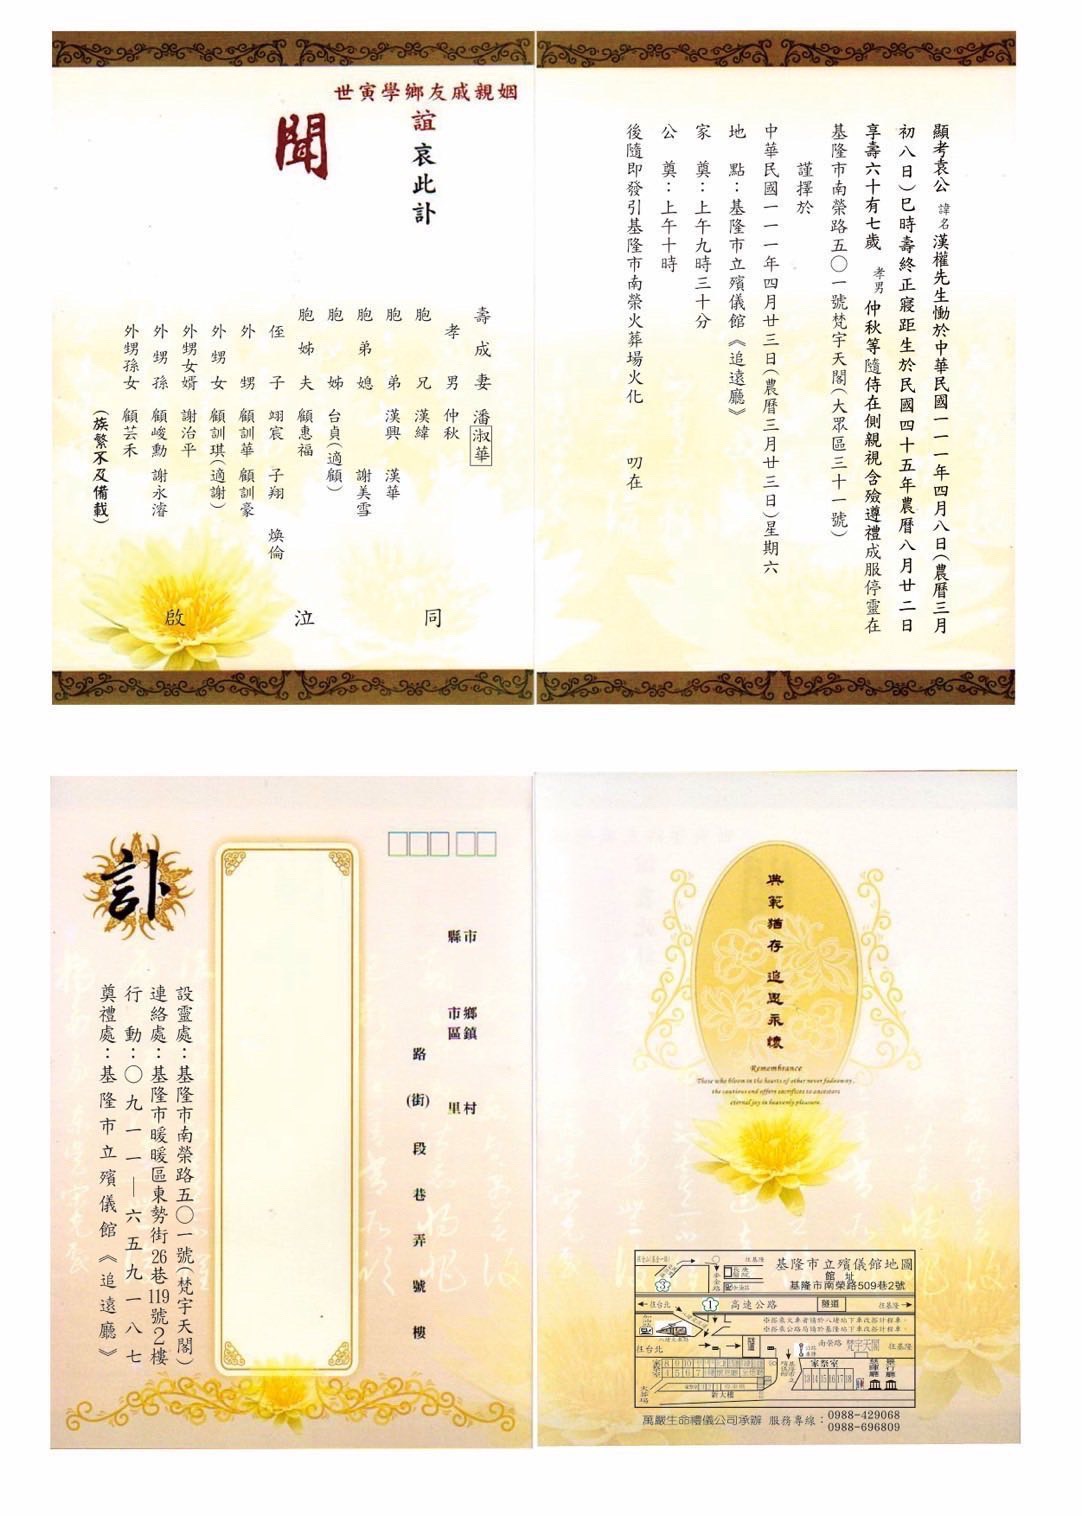 顯考袁公諱名漢權先生慟於中華民國一一一年四月八日(農曆三月
初八日)巳時壽終正寢距生於民國四十五年農曆八月廿二日
享壽六十有七歲 孝男仲秋等隨侍在側親視含殮遵禮成服停靈在
基隆市南榮路五〇一號梵宇天閣(大眾區三十一號)
謹擇於
中華民國一一一年四月廿三日(農曆三月廿三日)星期六
地 點：基隆市立殯儀館《追遠廳》
家 奠：上午九時三十分
公 奠：上午十時
後隨即發引基隆市南榮火葬場火化 叨在
世寅學鄉友戚親姻
誼 哀此訃
聞
壽成妻 潘淑華
孝男 仲秋
胞兄 漢緯
胞弟 漢興 漢華
胞弟媳 謝美雪
胞姊 台貞(適顧)
胞姊夫 顧惠福
侄子 翊宸 子翔 煥倫
外甥 顧訓華 顧訓豪
外甥女 顧訓琪(適謝)
外甥女婿 謝治平
外甥孫 顧峻勳 謝永濬
外甥孫女 顧芸禾
(族繁不及備載)
同 泣 啟
訃
縣市
市區 鄉鎮
里村
路(街) 段 巷 弄 號 樓
設靈處：基隆市南榮路五〇一號(梵宇天閣)
連絡處：基隆市暖暖區東勢街26巷119號2樓
行 動：〇九一一—六五九一八七
奠禮處：基隆市立殯儀館《追遠廳》
典範猶存 追思永懷
Remembrance
Those who bloom in the hearts of other never fadeaway,
the cautious and offers sacrifices to ancestors
eternal joy in heavenly pleasure.
基隆市立殯儀館地圖
館 址
基隆市南榮路509巷2號
往基隆
3
往台北 1 高速公路 隧道 往基隆
往台北
南榮路 梵宇天閣 往基隆
家祭室
8 9 10
4 5 6 7
13 14 15 16 17 18
新大樓
火葬場
萬嚴生命禮儀公司承辦 服務專線：0988-429068
0988-696809